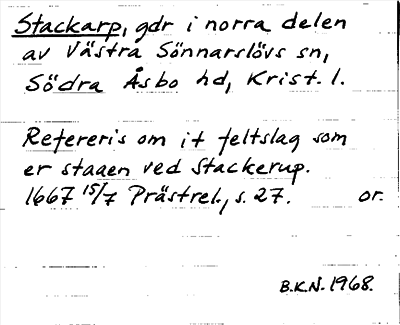 Stackarp, gdr i norra delen
av Västra Sönnarslövs sn,
Södra Åsbo hd, Krist. l.
Refereris om it feltslag som
er staaen ved Stackerup.
1667 15/7 Prästrel., s. 27. or.
B.K.N. 1968.